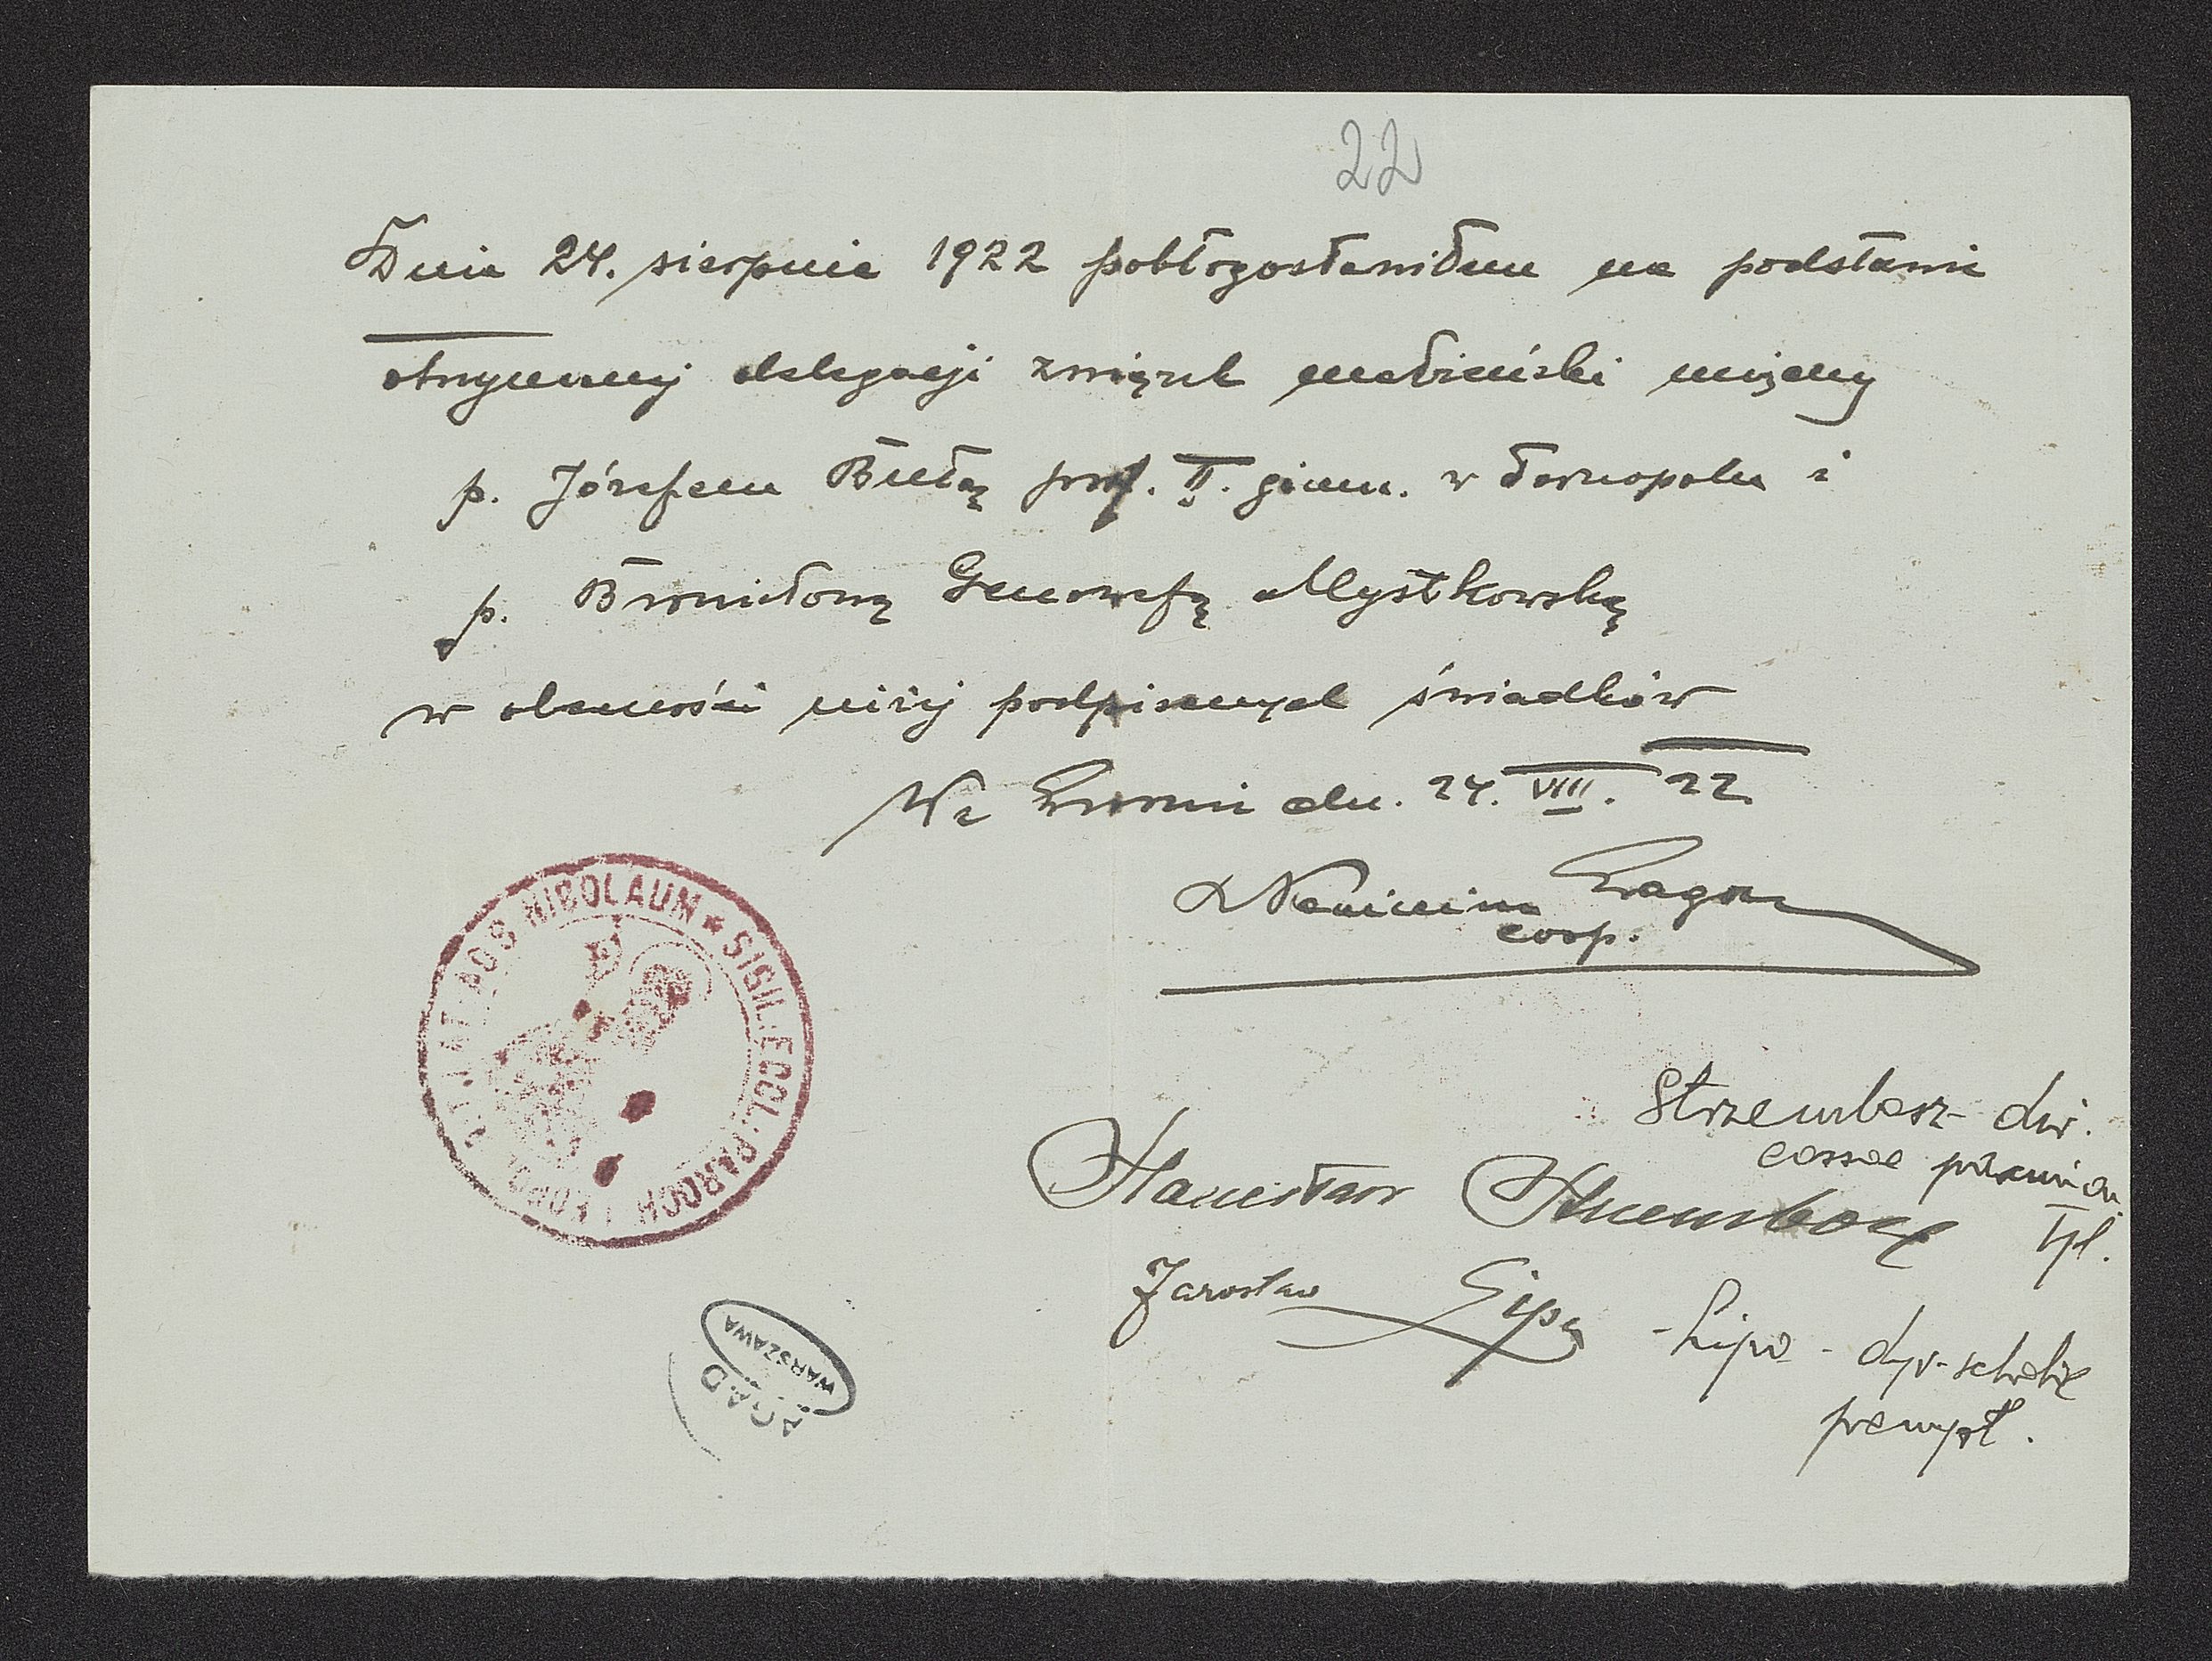 22
Dnia 24. sierpnia 1922 pobłogosławiłem na podstawie
otrzymanej delegacji związek małżeński między
p. Józefem Bułą prof. II. gimn. w Tarnopolu i
p. Bronisławą Genowefą Mystkowską
w obecności niżej podpisanych świadków
We Lwowie dn. 24. VIII. 22.
X Kazimierz
coop.
Strzembosz dir.
cassae
Tpl.
Stanisław Strzembosz
Jarosław Lipa
- Lipa - dyr. scholae
przemysł.
NICOLAUM * SIGIL. ECCL. PAROCH
AGAD
WARSZAWA